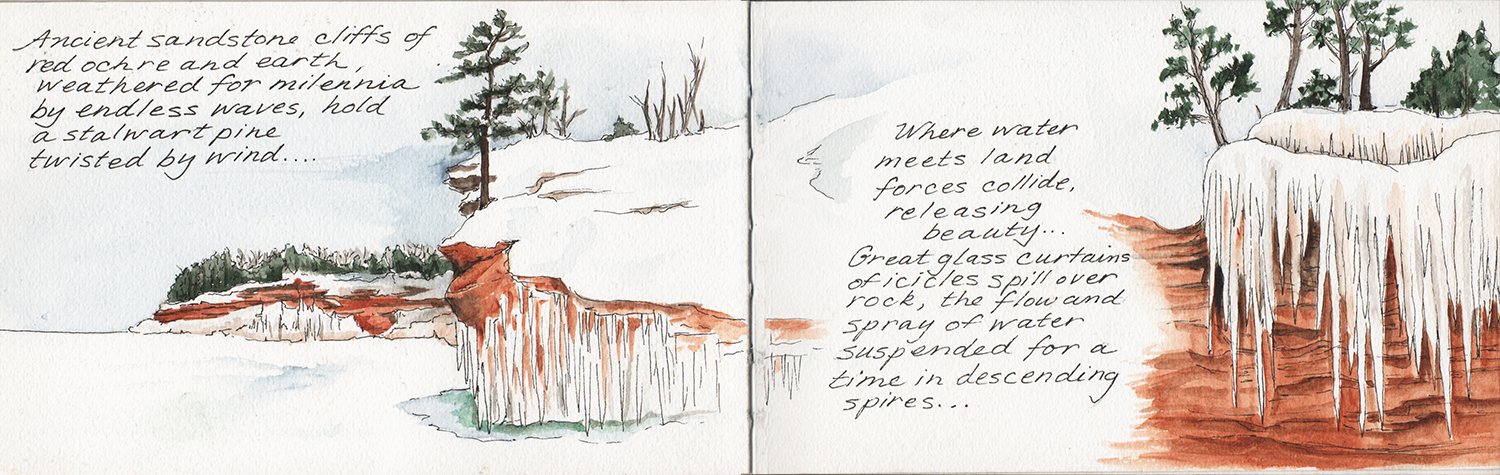 Ancient sandstone cliffs of
red ochre and earth,
weathered for milennia
by endless waves, hold
a stalwart pine
twisted by wind....
Where water
meets land
forces collide,
releasing
beauty...
Great glass curtains
of icicles spill over
rock, the flow and
spray of water
suspended for a
time in descending
spires...